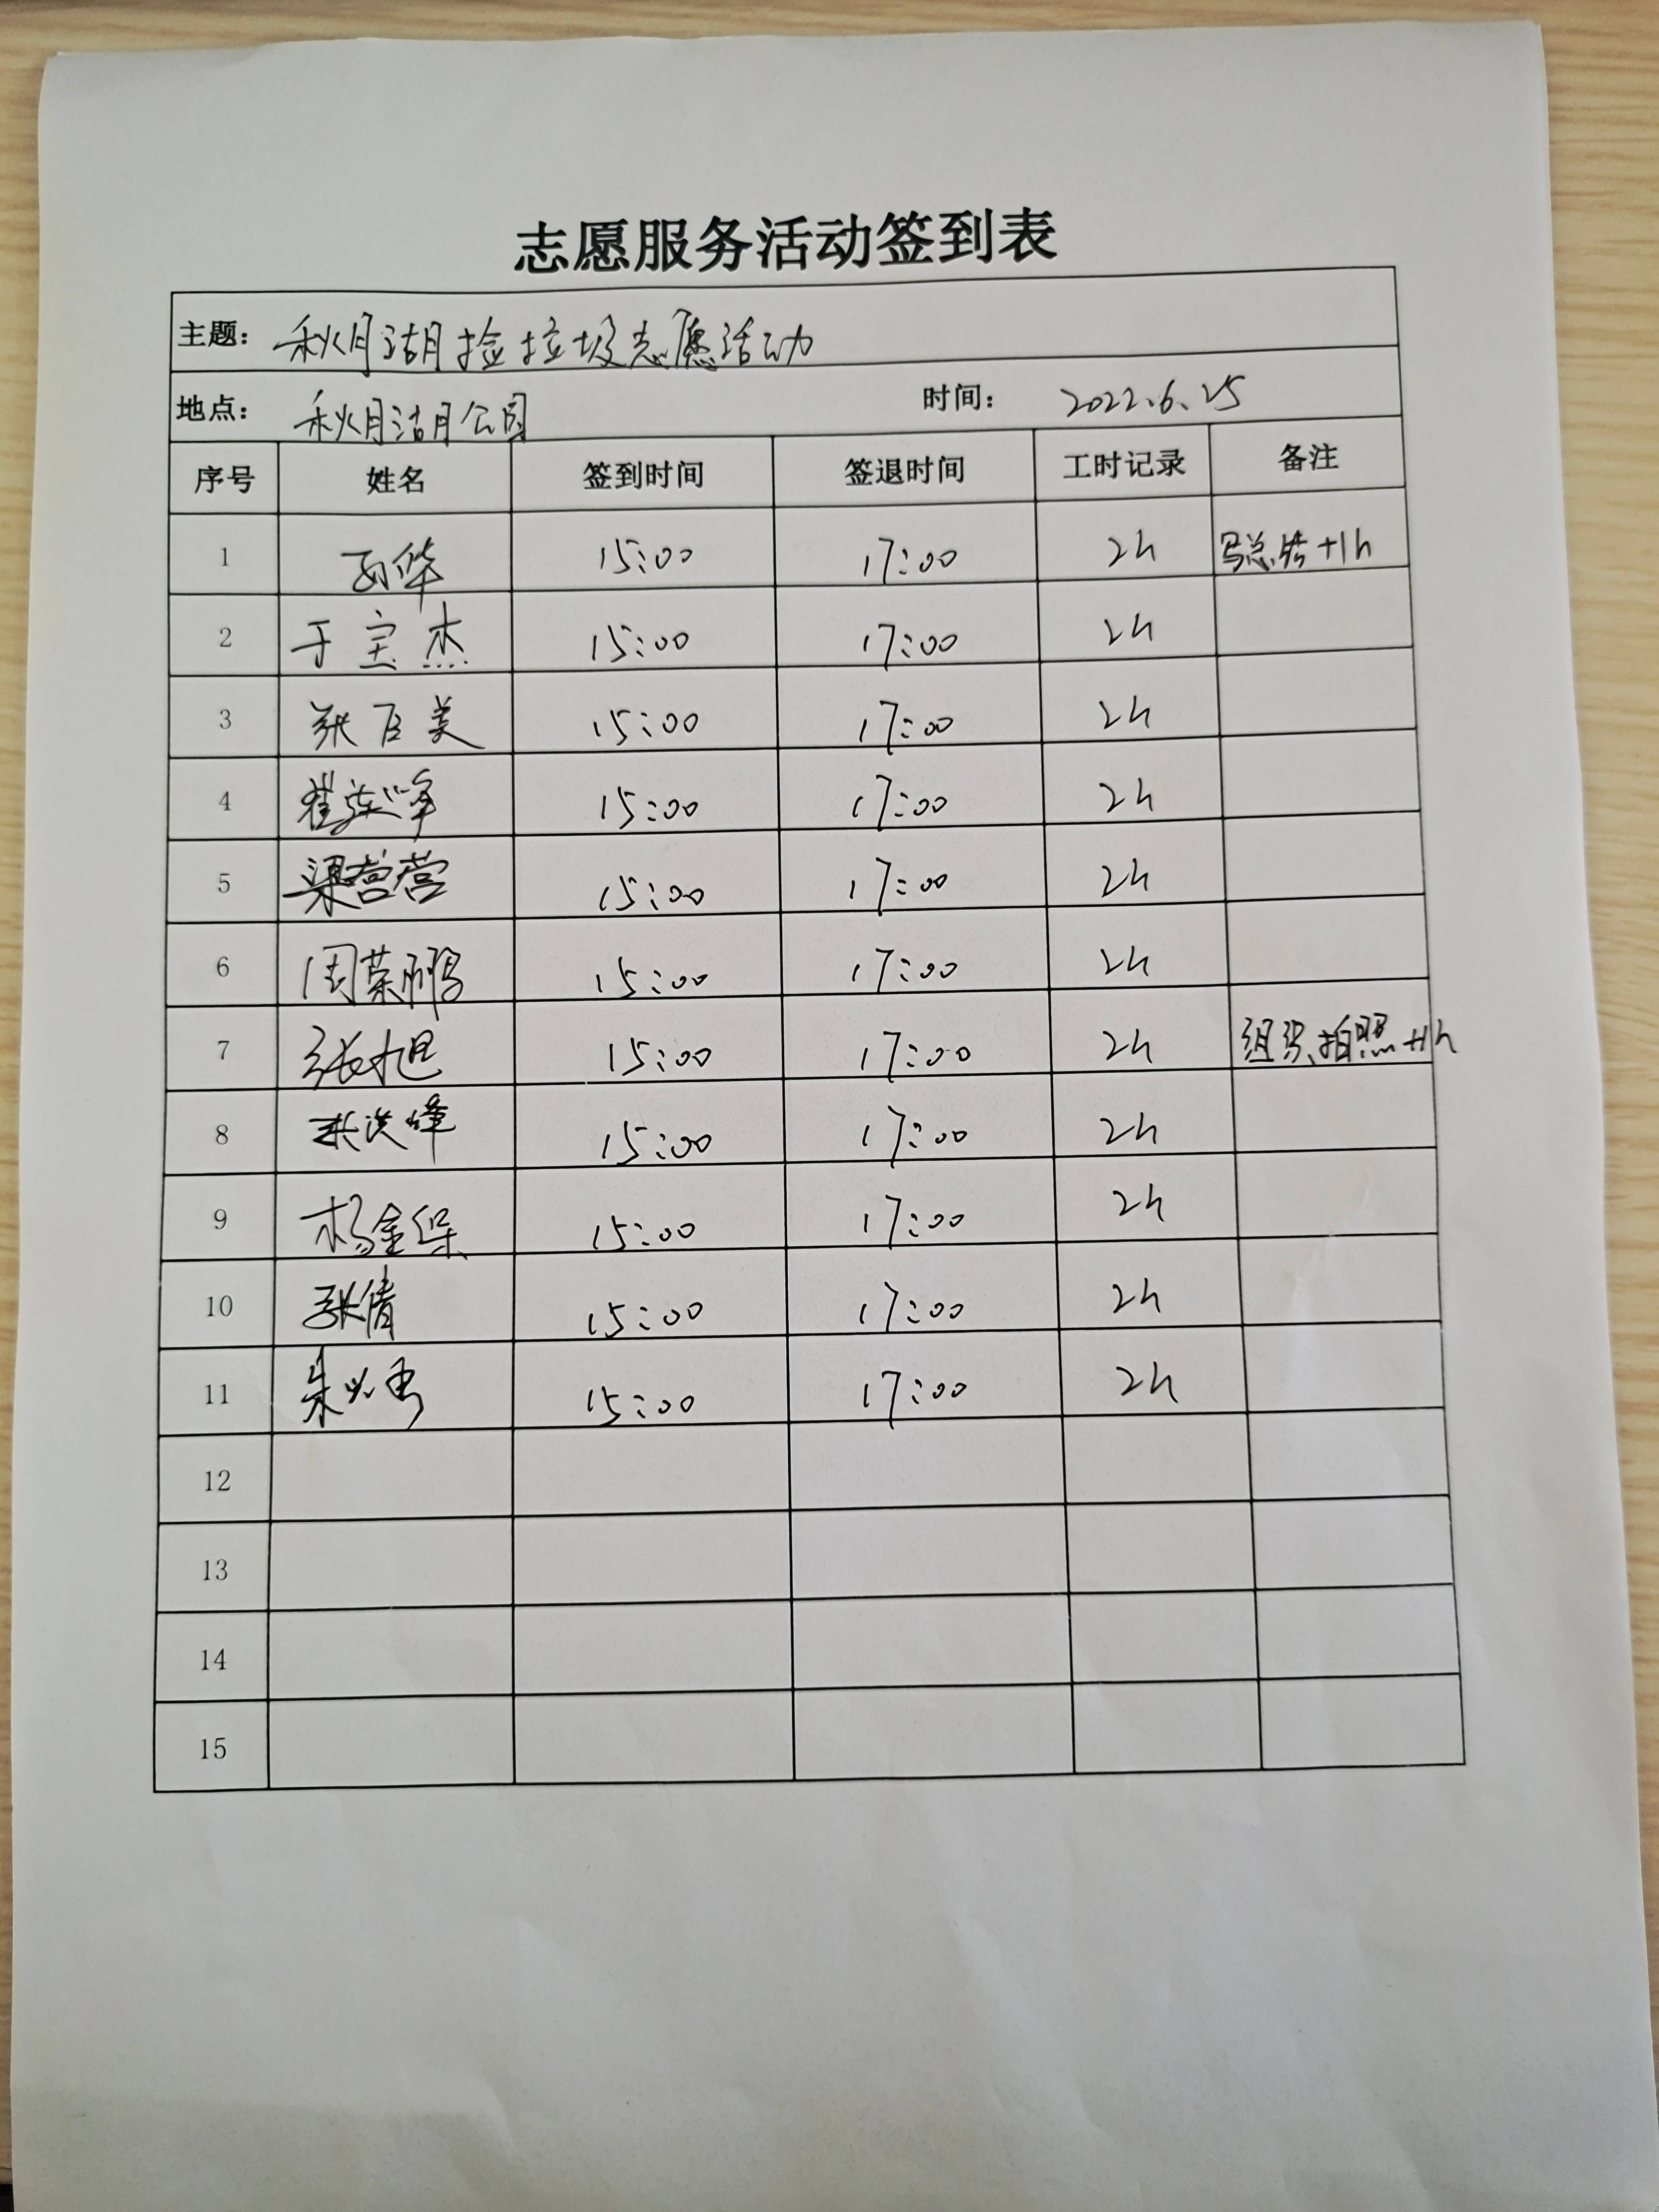 志愿服务活动签到表
主题: 秋月湖捡垃圾志愿活动
地点: 秋月湖公园 时间: 2022.6.25
序号 姓名 签到时间 签退时间 工时记录 备注
1 华 15:00 17:00 2h 写总结+1h
2 于宝杰 15:00 17:00 2h
3 张巨美 15:00 17:00 2h
4 崔 峰 15:00 17:00 2h
5 梁营营 15:00 17:00 2h
6 周荣鹏 15:00 17:00 2h
7 张旭 15:00 17:00 2h 组织、拍照+1h
8 张洪峰 15:00 17:00 2h
9 杨金保 15:00 17:00 2h
10 张倩 15:00 17:00 2h
11 朱 15:00 17:00 2h
12
13
14
15